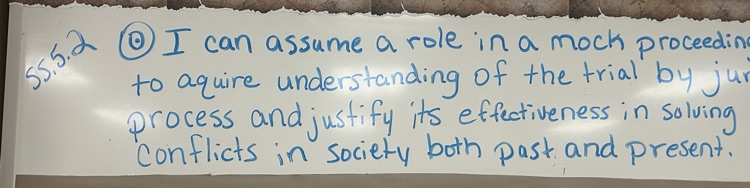 SS.5.2 ◎ I can assume a role in a mock proceedin
to aquire understanding of the trial by
process and justify its effectiveness in solving
conflicts in society both past and present.